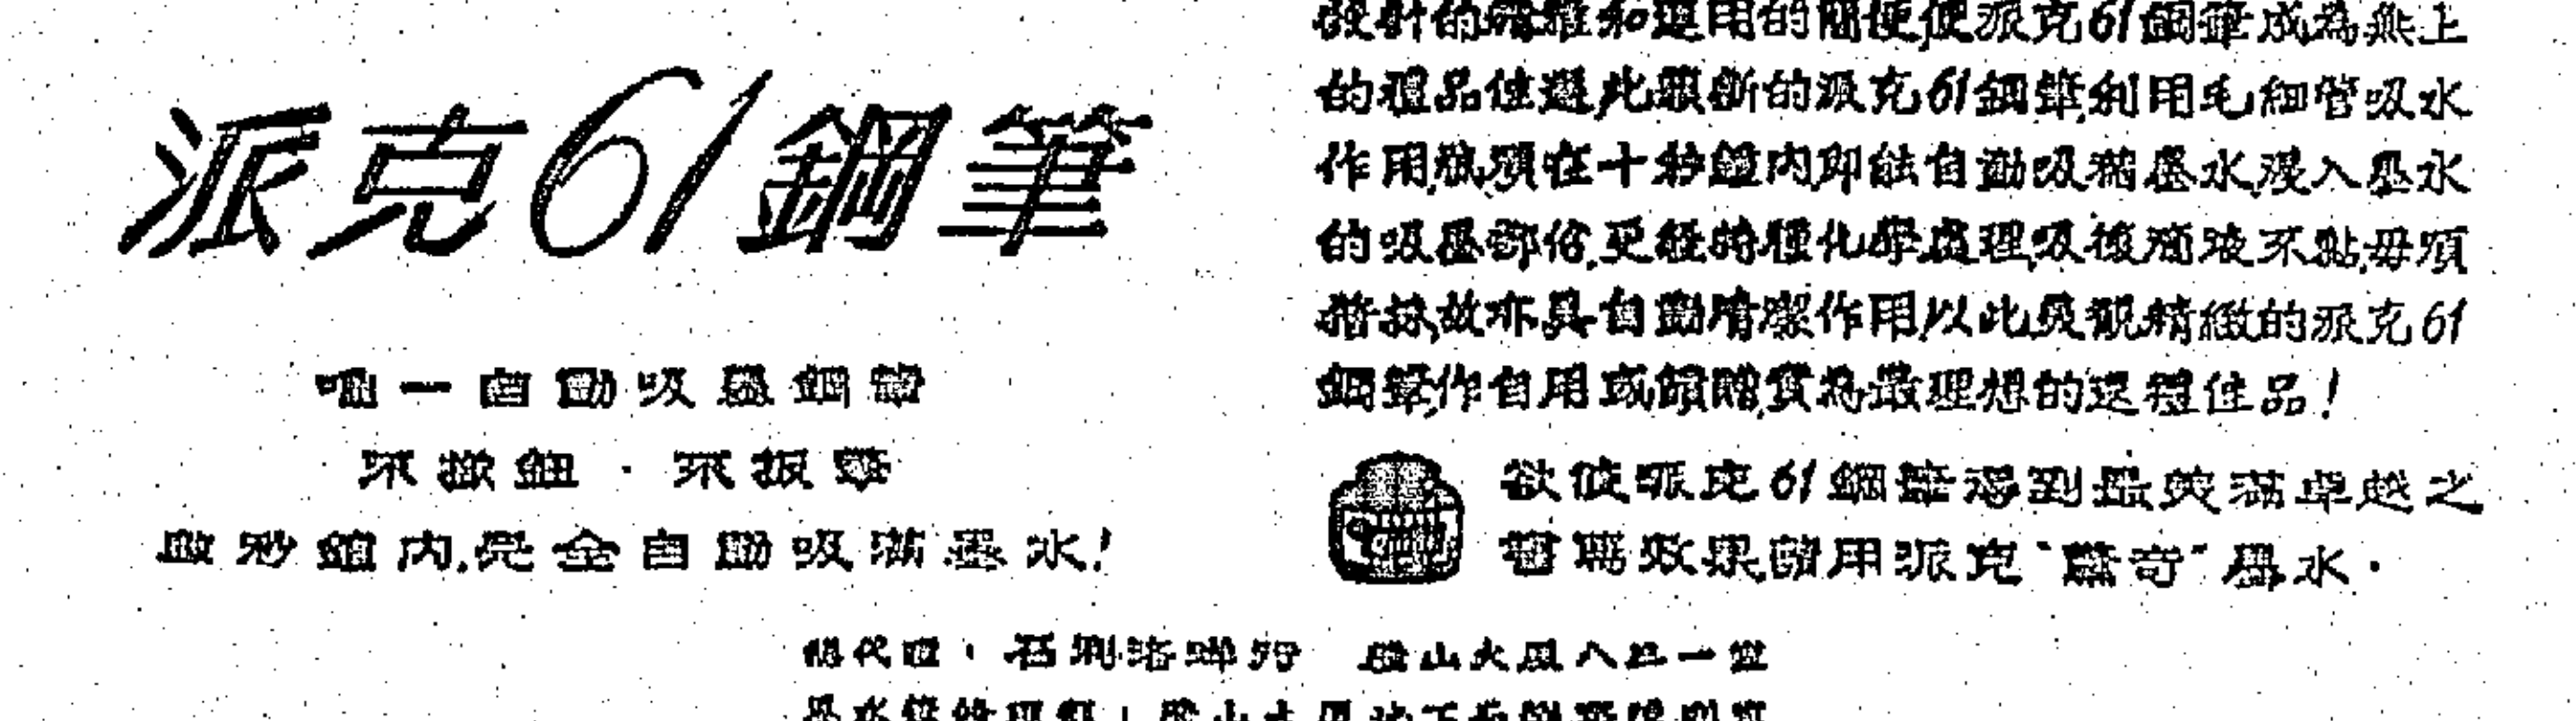 派克61鋼筆
唯一自動吸墨鋼筆
不撳鈕·不扳擎
數秒鐘內,完全自動吸滿墨水!
設計的 和運用的簡便,使派克61鋼筆成為無上
的禮品佳選,此嶄新的派克61鋼筆,利用毛細管吸水
作用,祇須在十秒鐘內即能自動吸滿墨水,浸入墨水
的吸墨部份,更經特種化學處理,吸後滴液不黏,毋須
揩抹,故亦具自動清潔作用,以此美觀精緻的派克61
鋼筆,作自用或饋贈,實為最理想的送禮佳品!
欲使派克61鋼筆得到最美滿卓越之
書寫效果,請用派克"驚奇"墨水·
總代理:石利洛洋行 大廈八五一室